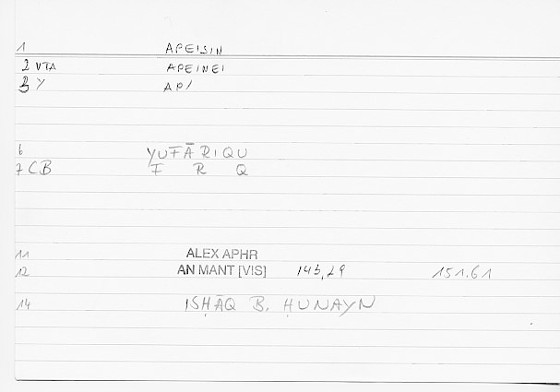 1 APEISIN
2 VTA APEINEI
3 Y AP/
6 YUFĀRIQU
7 CB F R Q
11 ALEX APHR
12 AN MANT [VIS] 145,29 151.61
14 ISḤĀQ B. ḤUNAYN